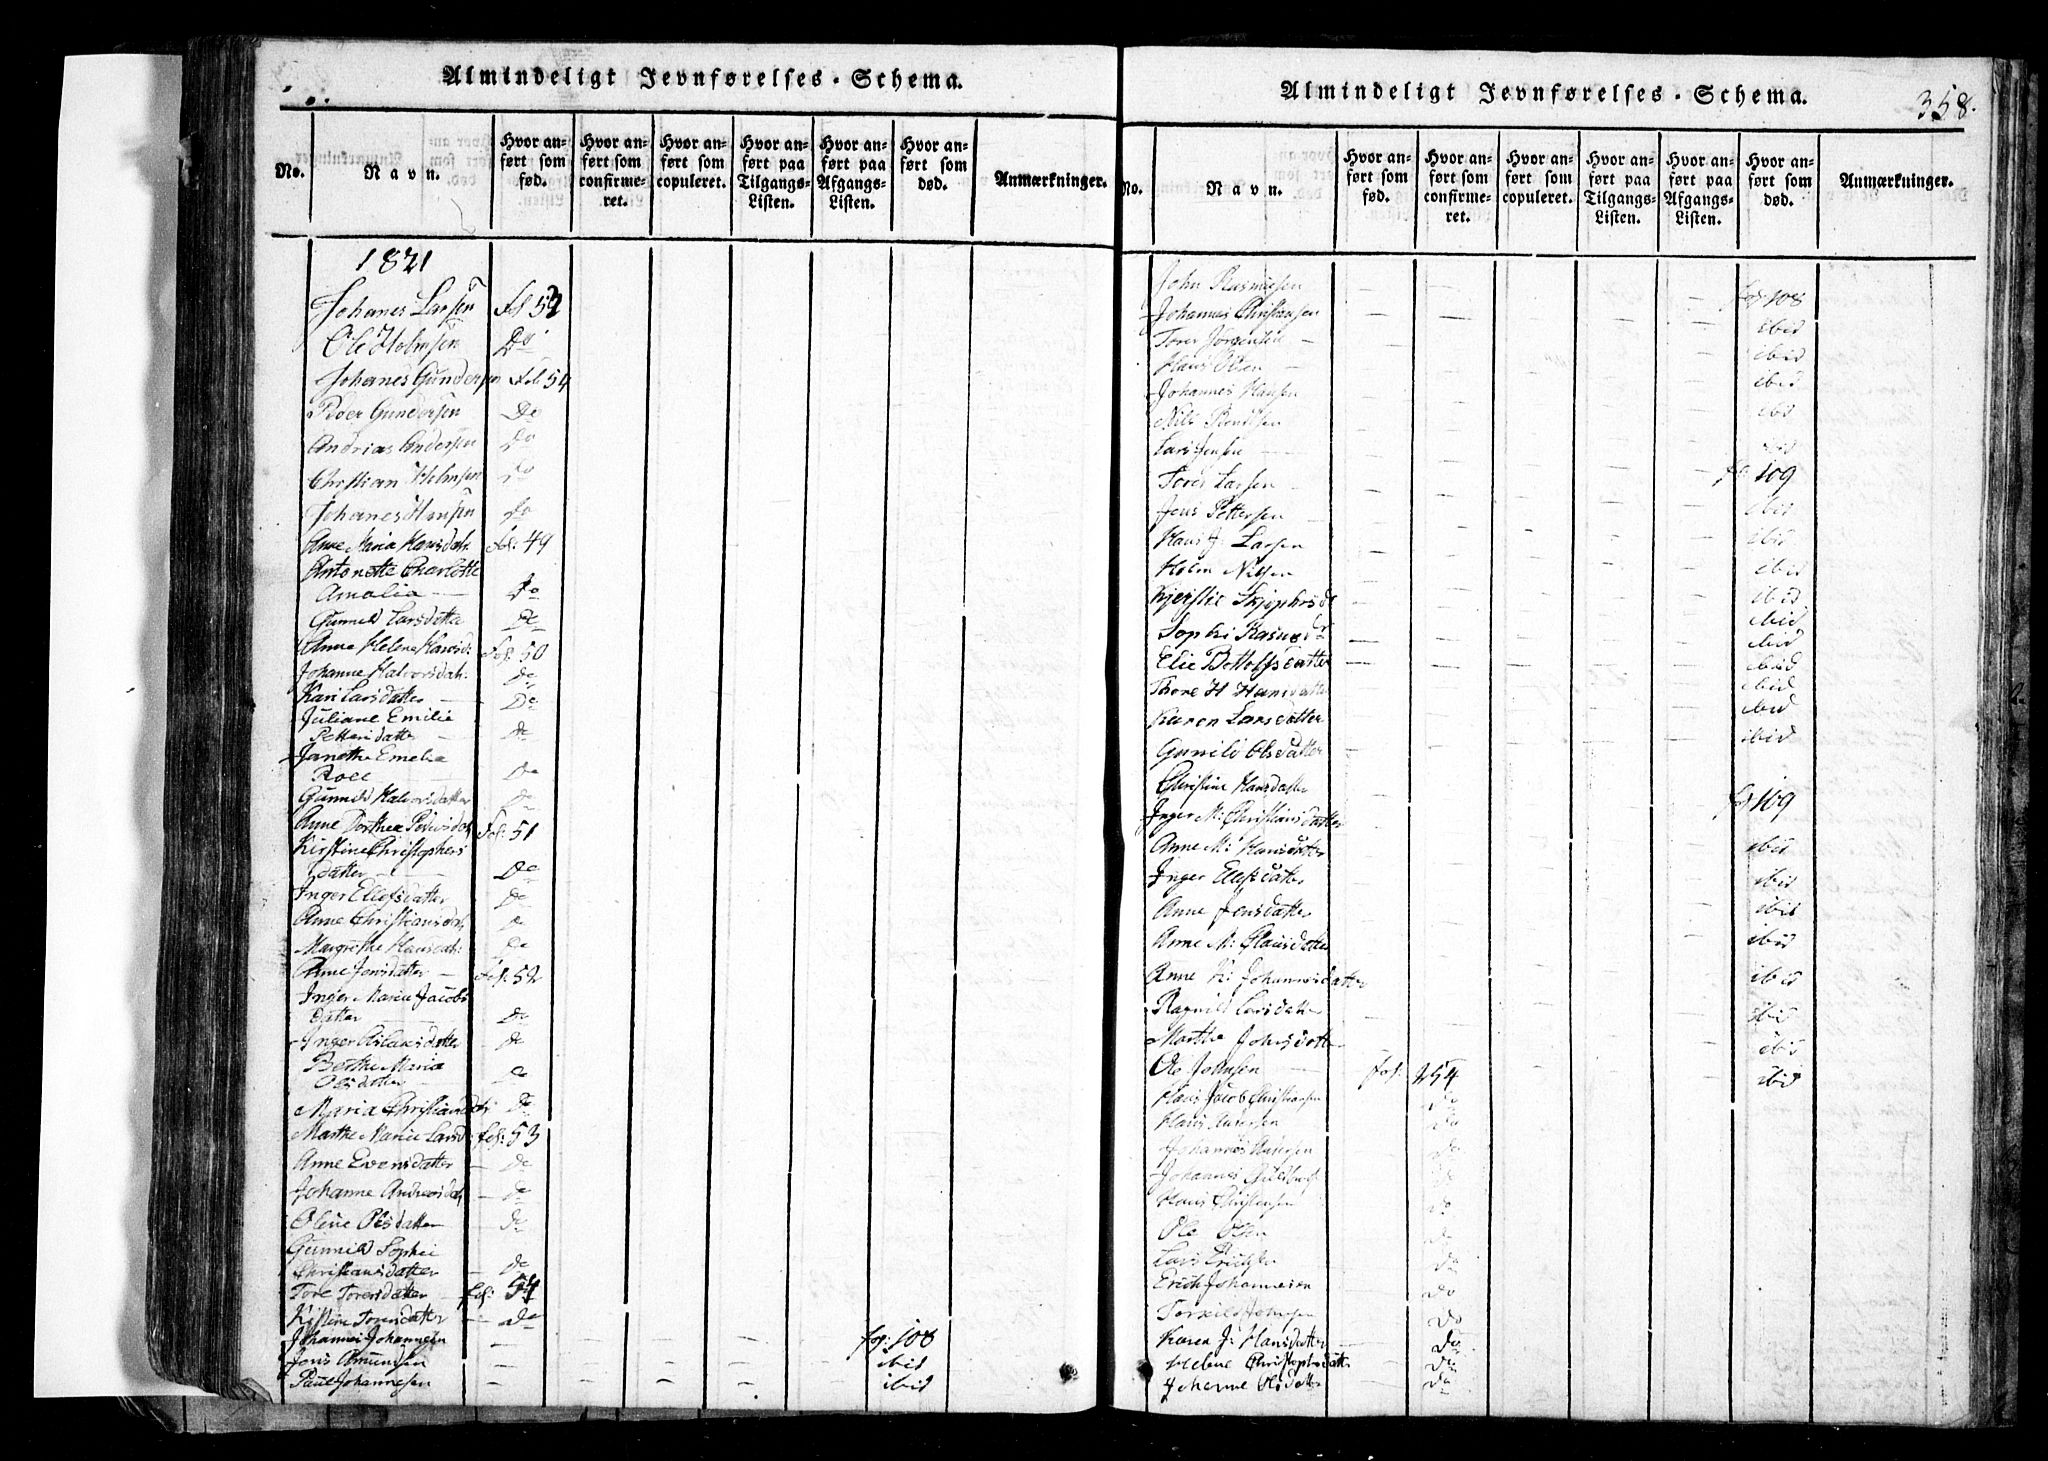 Almindeligt Jevnførelses-Schema.
No.
Navn.
Hvor an-
ført som
fød.
Hvor an-
ført som
confirme-
ret.
Hvor an-
ført som
copuleret.
Hvor an-
ført paa
Tilgangs-
Listen.
Hvor an-
ført paa
Afgangs-
Listen.
Hvor an-
ført som
død.
Anmærkninger.
1821
Johanes Larsen Fol 53
Ole Holmsen Do
Johanes Gundersen Fol 54
Roer Gundersen Do
Andrias Andersen Do
Christian Holmsen Do
Johanes Hansen Do
Anne Maria Hansdatr. Fol: 49
Antonette Charlotte
Amalia Do
Gunnild Larsdatter De
Anne Helene Hansd. Fol: 50
Johanne Halvorsdatr. De
Kari Larsdatter De
Juliane Emilie
Pettersdatter De
Janethe Emelie
Roll De
Gunnild Halvorsdatter De
Anne Dorthea Pedersdat. Fol: 51
Kirstine Christophers
datter De
Inger Ellefsdatter De
Anne Christiansdat. De
Margrethe Hansdat: De
Anne Jensdatter Fol: 52
Inger Maria Jacobs
datter De
Inger Aslaksdatter De
Berthe Maria
Olsdatter De
Maria Christiansdat: De
Marthe Marie Larsd: Fol: 53
Anne Evensdatter De
Johanne Andreasdat. De
Olene Olsdatter De
Gunnild Sophie
Christiansdatter De
Tore Torersdatter fol: 54
Kistine Torersdatter De
Johannes Johannesen fol: 108
Jens Amundsen ibid
Paul Johannesen ibid
Almindeligt Jevnførelses-Schema.
358.
No.
Navn.
Hvor an-
ført som
fød.
Hvor an-
ført som
confirme-
ret.
Hvor an-
ført som
copuleret.
Hvor an-
ført paa
Tilgangs-
Listen.
Hvor an-
ført paa
Afgangs-
Listen.
Hvor an-
ført som
død.
Anmærkninger.
John Rasmusen fol 108
Johannes Christensen ibid
Torer Jørgensen ibid
Hans Olsen ibid
Johannes Hansen ibid
Nils Bendtsen
Lars Jensen ibid
Torer Larsen fol 109
Jens Pettersen ibid
Hans J. Larsen ibid
Holm Nilsen ibid
Kjerstie ibid
Sophi ibid
Elie Bottolfsdatter ibid
Thore H Hansdatter ibid
Karen Larsdatter ibid
Gunild Olsdatter ibid
Christine Hansdatter
Inger M: Christiansdatter fol 109
Anne M: Hansdatter ibid
Inger Ellefsdatter ibid
Anne Jensdatter ibid
Anne M: Clausdatter ibid
Anne K: Johannesdatter ibid
Ragnild Larsdatter ibid
Marthe Johnsdatter ibid
Ole Johnsen fol: 254 ibid
Hans Jacob Christiansen do
Hans Andersen do
Johannes Andersen do
Johannes do
Hans Christensen do
Ole Olsen do
Lars Erichsen do
Erich Johannesen do
Torkild do
Karen J: Hansdatter do
Helene Christophsdatter do
Johanne Olsdatter do